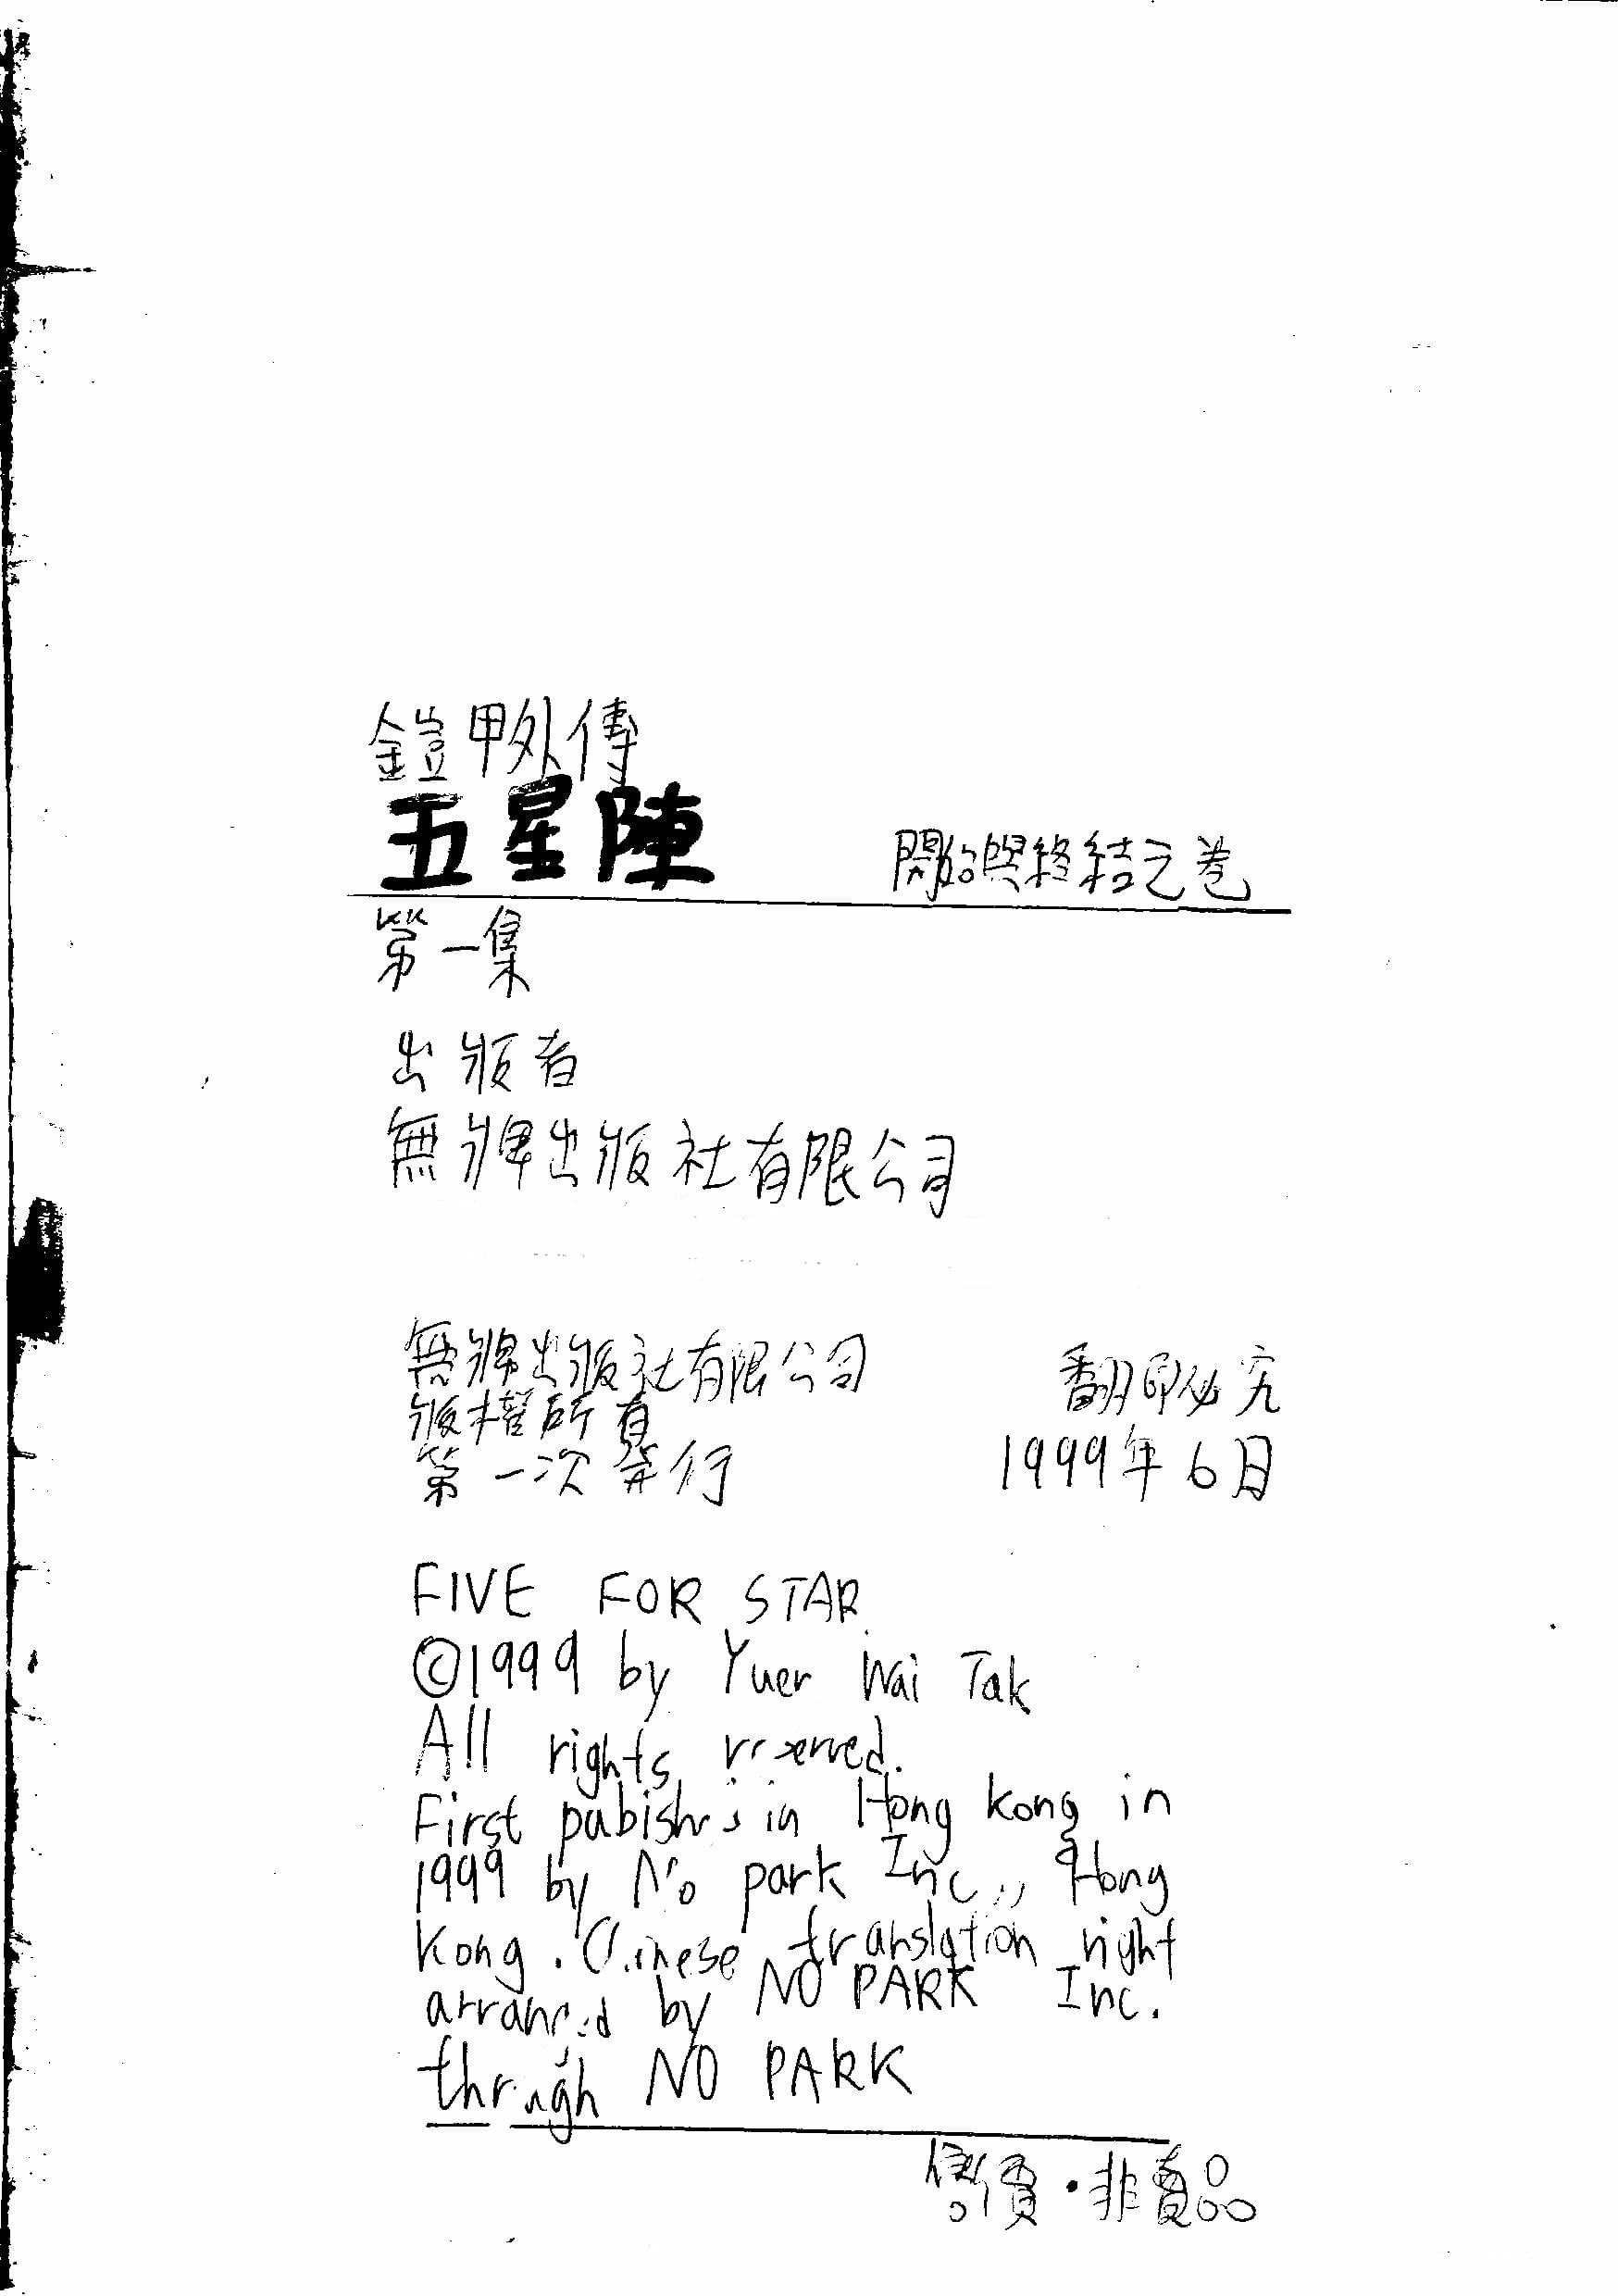 鎧甲外傳
五星陣 開始與終結之卷
第一集
出版者
無牌出版社有限公司
無牌出版社有限公司 翻印必究
版權所有
第一次發行 1999年6月
FIVE FOR STAR
©1999 by Yuen Wai Tak
All rights reserved.
First pubished in Hong Kong in
1999 by No park Inc., Hong
Kong. Chinese translation right
arranged by NO PARK Inc.
through NO PARK
售價・非賣品